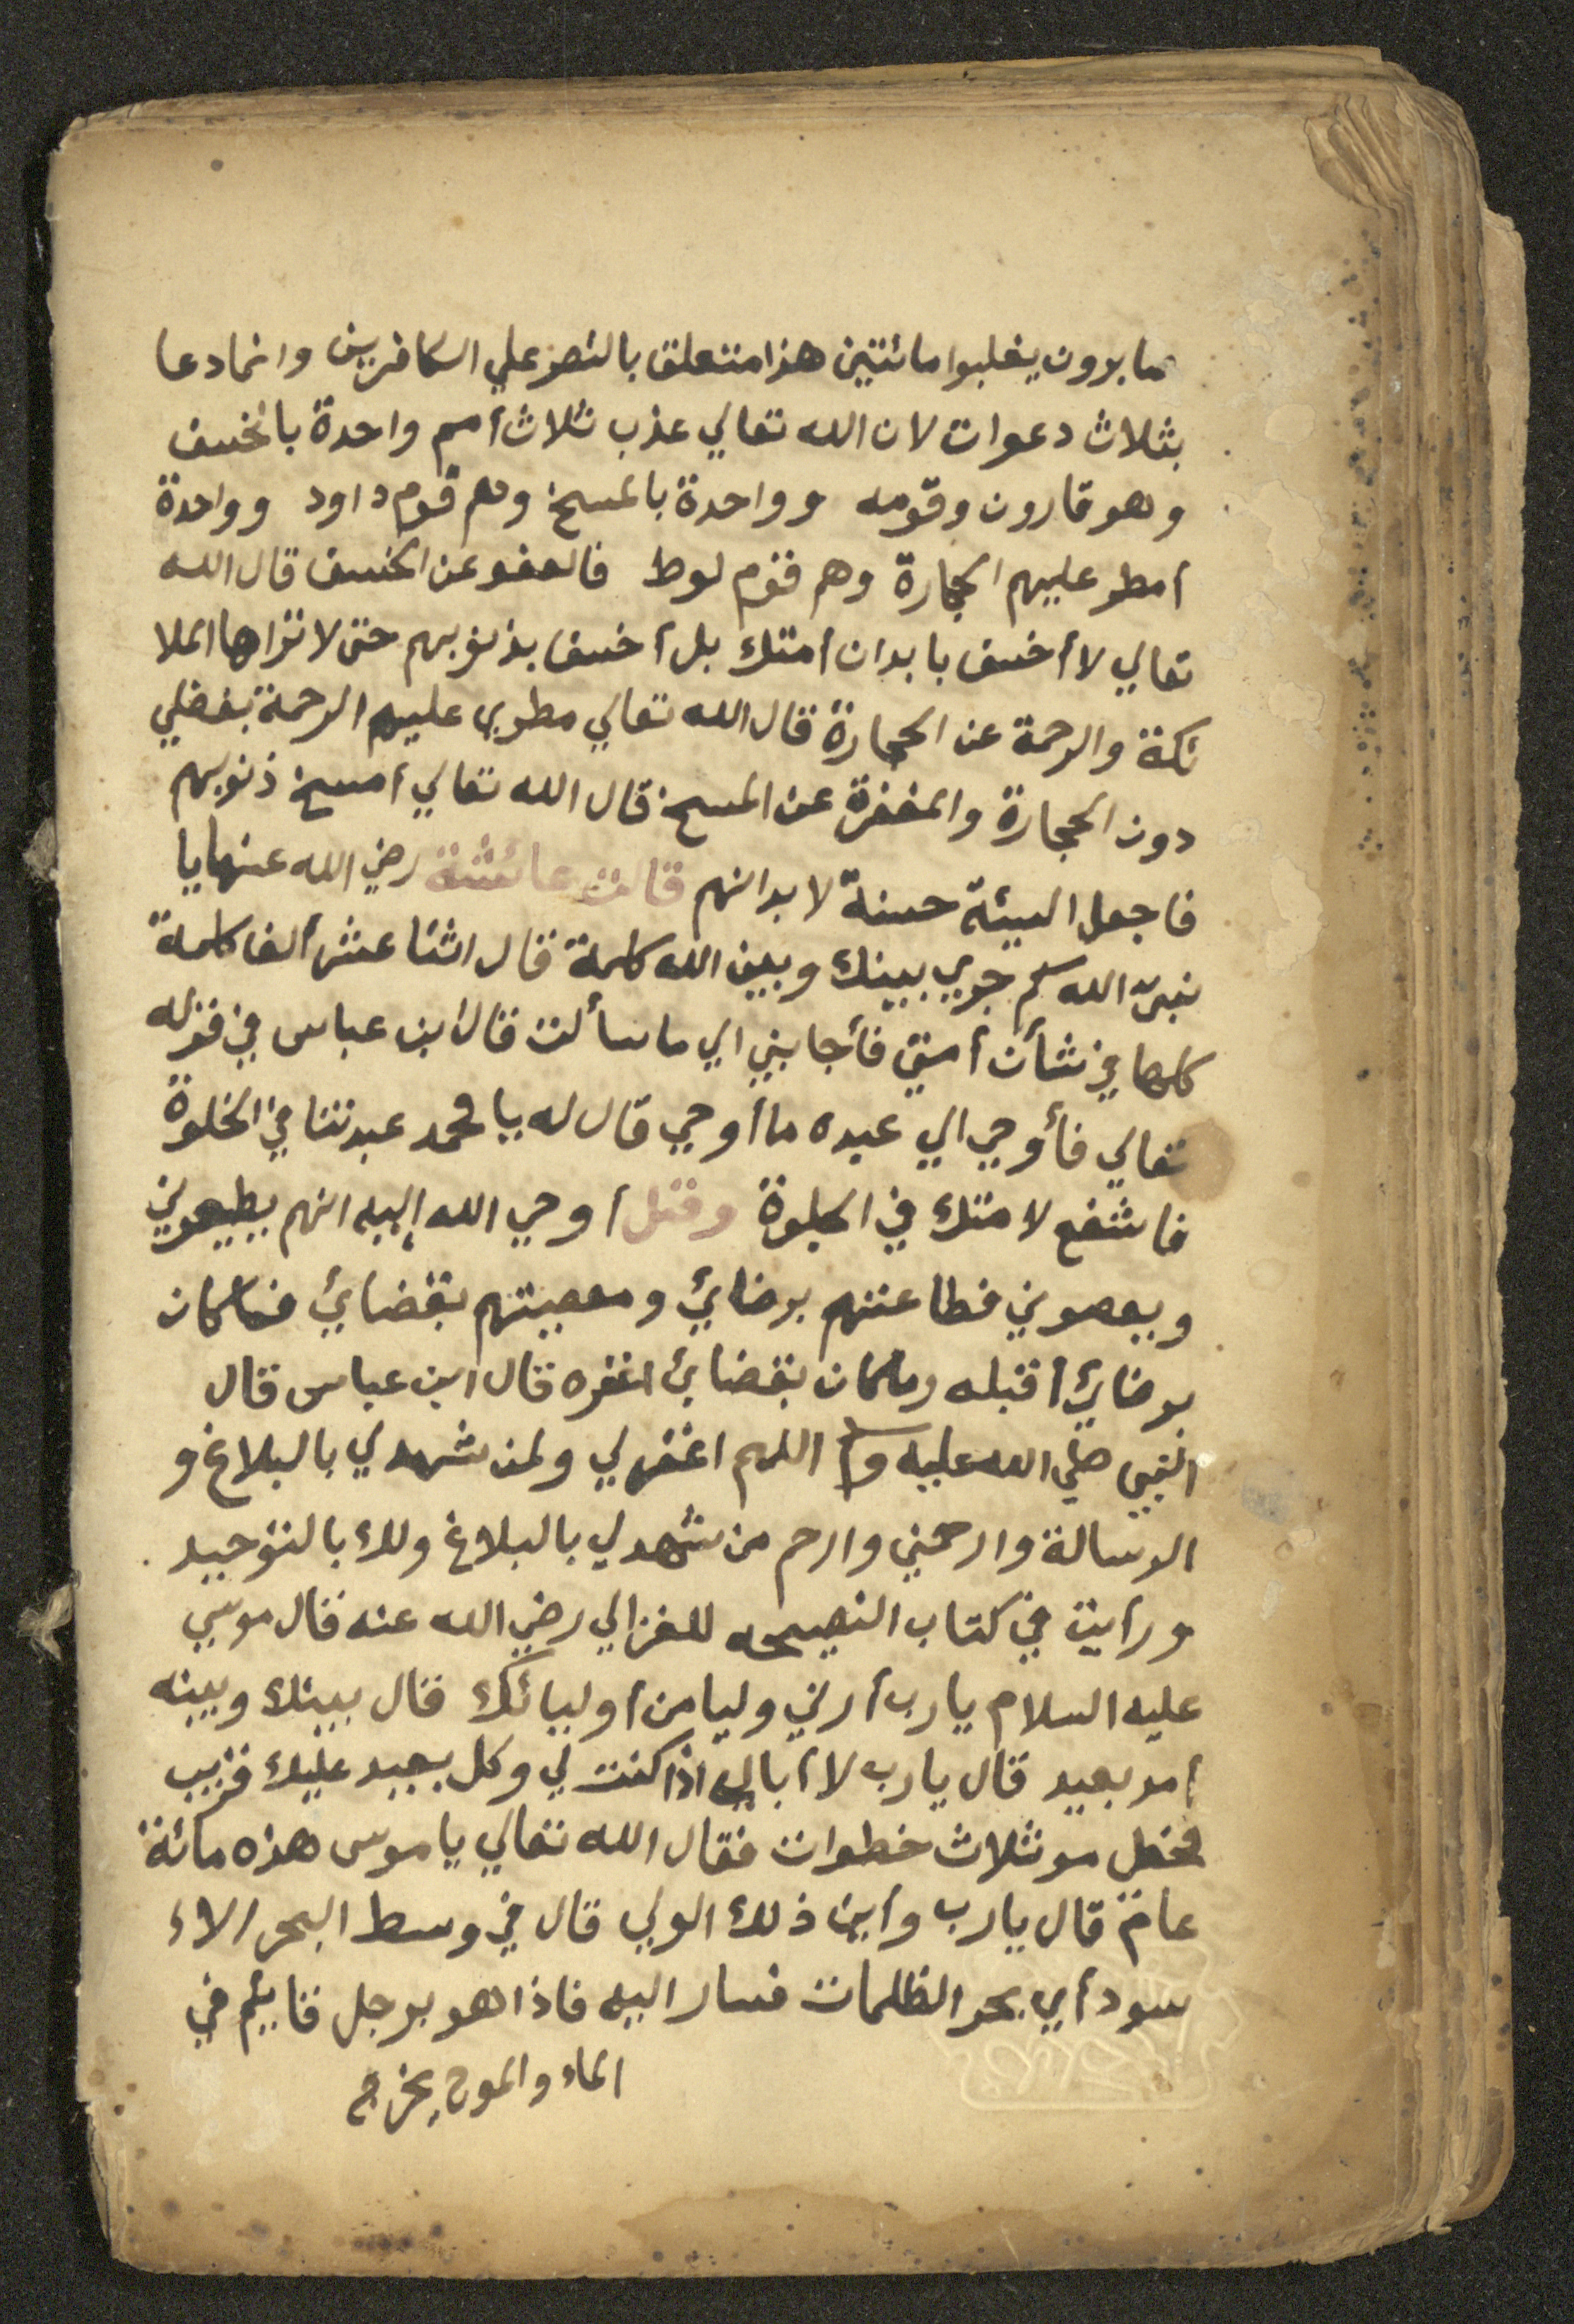 صابرون يغلبوا مائتين هذا متعلق بالنصر علي الكافرين وانما دعا
بثلاث دعوات لان الله تعالي عذب ثلاث أمم واحدة بالخسف
وهو قارون وقومه وواحدة بالمسخ وهم قوم داود وواحدة
أمطر عليهم الحجارة وهم قوم لوط فالعفو عن الخسف قال الله
تعالي لا أخسف بابدان أمتك بل أخسف بذنوبهم حتى لا تراها الملا
ئكة والرحمة عن الحجارة قال الله تعالي مطري عليهم الرحمة بفضلي
دون الحجارة والمغفرة عن المسخ قال الله تعالي أمسخ ذنوبهم
فاجعل السيئة حسنة لا بدانهم قالت عائشة رضي الله عنها يا
نبيّ الله كم جري بينك وبين الله كلمة قال اثنا عشر ألف كلمة
كلها في شأن أمتي فأجابني الي ما سألت قال ابن عباس في قوله
تعالي فأوحي الي عبده ما أوحي قال له يا محمد عبدتنا في الخلوة
فاشفع لامتك في الجلوة وقيل أوحي الله إليه انهم يطيعوني
ويعصوني فطاعتهم برضائي ومعصيتهم بقضائي فما كان
برضائي أقبله وما كان بقضائي اغفره قال ابن عباس قال
النبي صلي الله عليه وسلم اللهم اغفرلي ولمن شهد لي بالبلاغ و
الرسالة وارحمني وارحم من شهد لي بالبلاغ ولك بالتوحيد
ورأيت في كتاب النصيحه للغزالي رضي الله عنه قال موسي
عليه السلام يارب أرني وليا من أوليائك قال بينك وبينه
أمد بعيد قال يارب لا أبالي اذا كنت لي وكل بعيد عليك قريب
ثلاث خطوات فقال الله تعالي يا موسي هذه مائة
عام قال يارب وأين ذلك الولي قال في وسط البحر الاء
سود أي بحر الظلمات فسار اليه فاذا هو برجل قايم في
الماء والموج يخرج